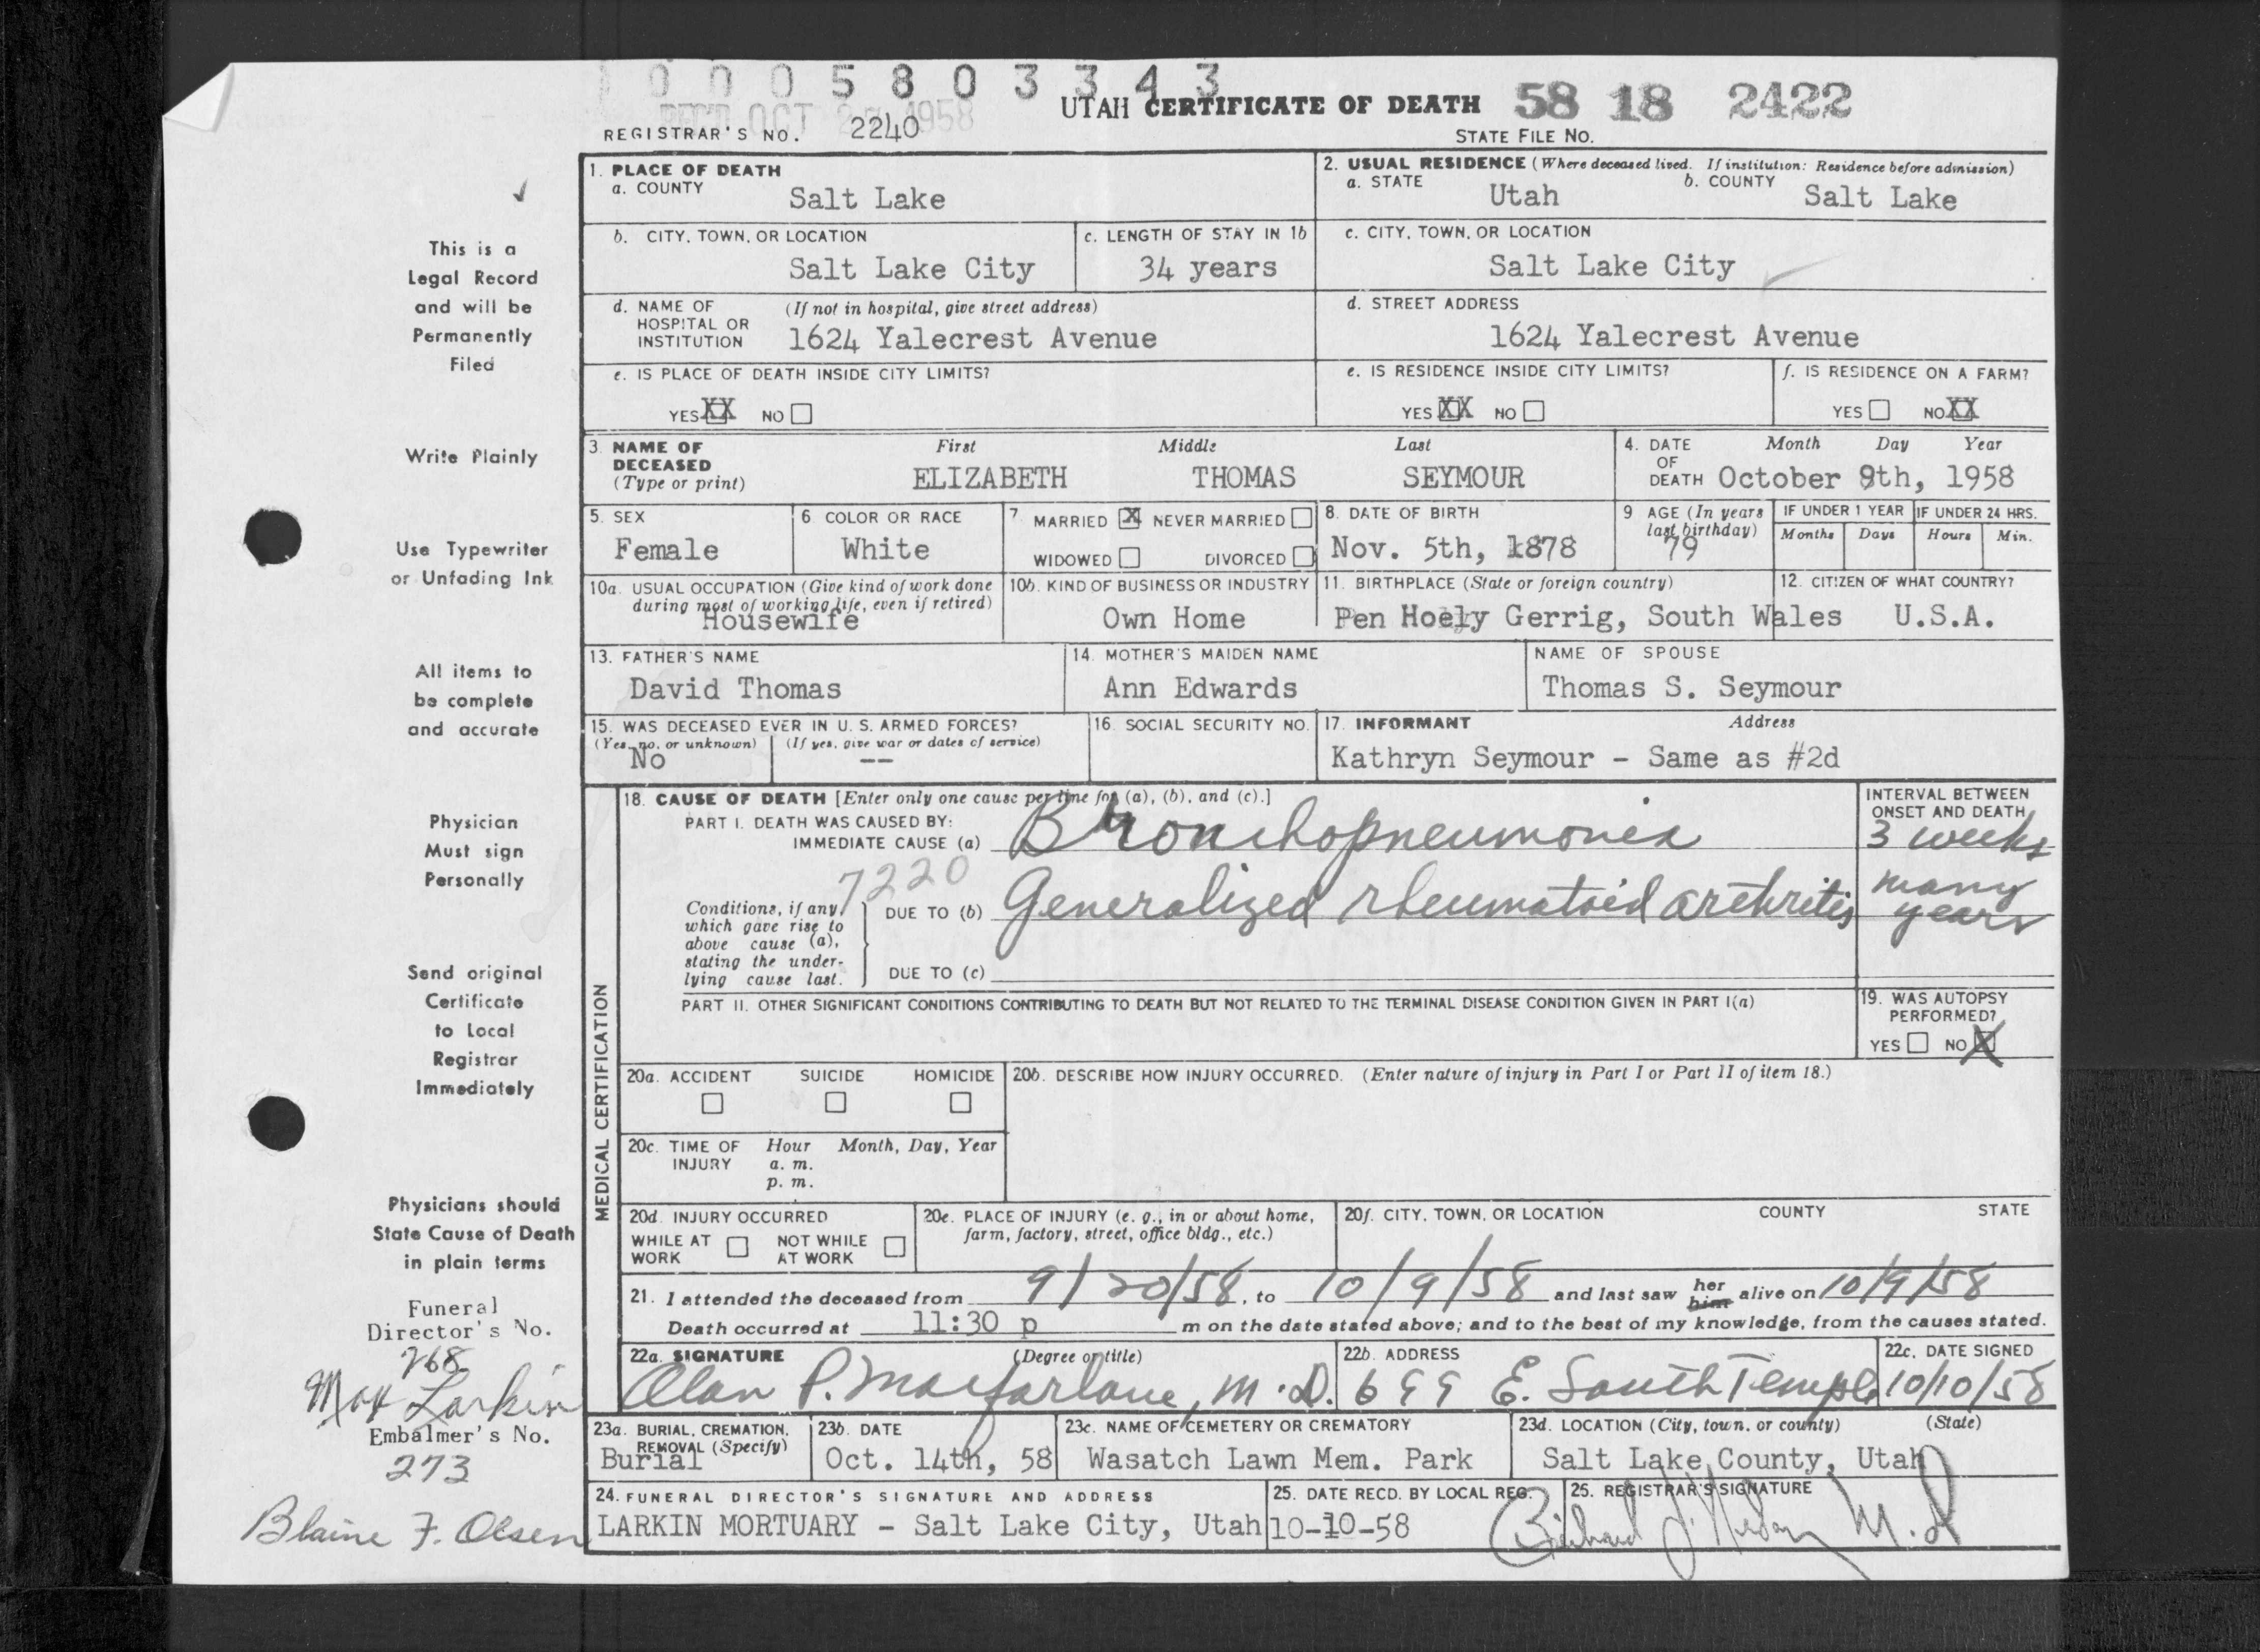 0005803343
REC'D OCT 1958
UTAH CERTIFICATE OF DEATH 58 18 2422
REGISTRAR'S NO. 2240
STATE FILE NO.
1. PLACE OF DEATH
a. COUNTY Salt Lake
2. USUAL RESIDENCE (Where deceased lived. If institution: Residence before admission)
a. STATE Utah b. COUNTY Salt Lake
b. CITY, TOWN, OR LOCATION Salt Lake City
c. LENGTH OF STAY IN 1b 34 years
c. CITY, TOWN, OR LOCATION Salt Lake City
d. NAME OF HOSPITAL OR INSTITUTION (If not in hospital, give street address)
1624 Yalecrest Avenue
d. STREET ADDRESS
1624 Yalecrest Avenue
e. IS PLACE OF DEATH INSIDE CITY LIMITS?
YES XX NO
e. IS RESIDENCE INSIDE CITY LIMITS?
YES XX NO
f. IS RESIDENCE ON A FARM?
YES NO XX
3. NAME OF DECEASED (Type or print)
First Middle Last
ELIZABETH THOMAS SEYMOUR
4. DATE OF DEATH Month Day Year
October 9th, 1958
5. SEX
Female
6 COLOR OR RACE
White
7. MARRIED X NEVER MARRIED
WIDOWED DIVORCED
8. DATE OF BIRTH
Nov. 5th, 1878
9 AGE (In years last birthday)
79
IF UNDER 1 YEAR IF UNDER 24 HRS.
Months Days Hours Min.
10a. USUAL OCCUPATION (Give kind of work done during most of working life, even if retired)
Housewife
10b. KIND OF BUSINESS OR INDUSTRY
Own Home
11. BIRTHPLACE (State or foreign country)
Pen Hoely Gerrig, South Wales
12. CITIZEN OF WHAT COUNTRY?
U.S.A.
13. FATHER'S NAME
David Thomas
14. MOTHER'S MAIDEN NAME
Ann Edwards
NAME OF SPOUSE
Thomas S. Seymour
15. WAS DECEASED EVER IN U. S. ARMED FORCES?
(Yes, no, or unknown) (If yes, give war or dates of service)
No --
16. SOCIAL SECURITY NO.
17. INFORMANT Address
Kathryn Seymour - Same as #2d
MEDICAL CERTIFICATION
18. CAUSE OF DEATH [Enter only one cause per line for (a), (b), and (c).]
PART I. DEATH WAS CAUSED BY:
IMMEDIATE CAUSE (a) Bronchopneumonia
INTERVAL BETWEEN ONSET AND DEATH
3 weeks
7220
Conditions, if any, which gave rise to above cause (a), stating the underlying cause last.
DUE TO (b) Generalized rheumatoid arthritis
many years
DUE TO (c)
PART II. OTHER SIGNIFICANT CONDITIONS CONTRIBUTING TO DEATH BUT NOT RELATED TO THE TERMINAL DISEASE CONDITION GIVEN IN PART I(a)
19. WAS AUTOPSY PERFORMED?
YES NO X
20a. ACCIDENT SUICIDE HOMICIDE
20b. DESCRIBE HOW INJURY OCCURRED. (Enter nature of injury in Part I or Part II of item 18.)
20c. TIME OF INJURY Hour Month, Day, Year
a. m.
p. m.
20d. INJURY OCCURRED
WHILE AT WORK NOT WHILE AT WORK
20e. PLACE OF INJURY (e. g., in or about home, farm, factory, street, office bldg., etc.)
20f. CITY, TOWN, OR LOCATION COUNTY STATE
21. I attended the deceased from 9/20/58, to 10/9/58 and last saw her him alive on 10/9/58
Death occurred at 11:30 p m on the date stated above; and to the best of my knowledge, from the causes stated.
22a. SIGNATURE (Degree or title)
Alan P. Macfarlane, M.D.
22b. ADDRESS
699 E. South Temple
22c. DATE SIGNED
10/10/58
23a. BURIAL, CREMATION, REMOVAL (Specify)
Burial
23b. DATE
Oct. 14th, 58
23c. NAME OF CEMETERY OR CREMATORY
Wasatch Lawn Mem. Park
23d. LOCATION (City, town, or county) (State)
Salt Lake County, Utah
24. FUNERAL DIRECTOR'S SIGNATURE AND ADDRESS
LARKIN MORTUARY - Salt Lake City, Utah
25. DATE RECD. BY LOCAL REG.
10-10-58
25. REGISTRAR'S SIGNATURE
Richard M.D
This is a
Legal Record
and will be
Permanently
Filed
Write Plainly
Use Typewriter
or Unfading Ink
All items to
be complete
and accurate
Physician
Must sign
Personally
Send original
Certificate
to Local
Registrar
Immediately
Physicians should
State Cause of Death
in plain terms
Funeral
Director's No.
268
Max Larkin
Embalmer's No.
273
Blaine F. Olsen